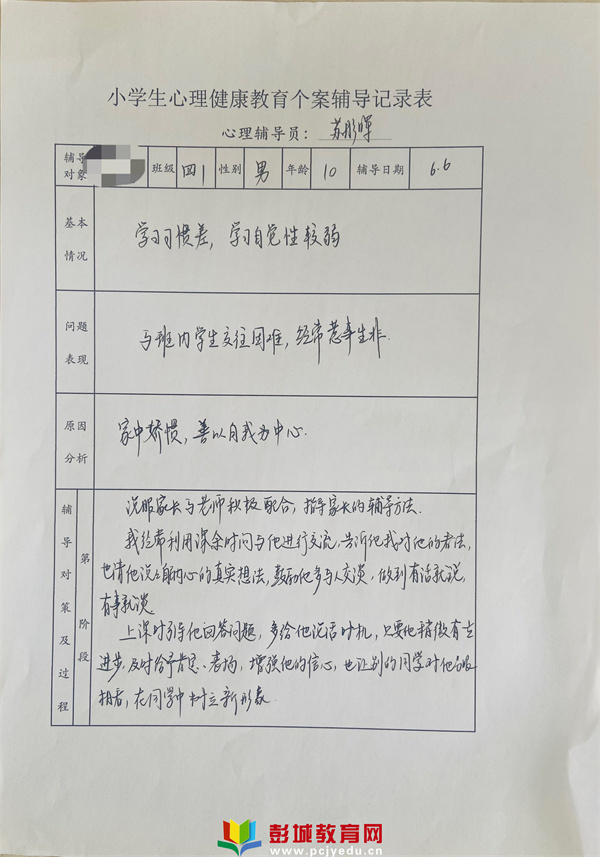 小学生心理健康教育个案辅导记录表
心理辅导员：苏彤晖
辅导对象 班级 四1 性别 男 年龄 10 辅导日期 6.6
基本情况 学习习惯差，学习自觉性较弱
问题表现 与班内学生交往困难，经常惹事生非.
原因分析 家中娇惯，善以自我为中心.
辅导对策及过程 第 阶段
说服家长与老师积极配合，指导家长的辅导方法.
我经常利用课余时间与他进行交流，告诉他我对他的看法，
也请他说说自己内心的真实想法，鼓励他多与人交谈，做到有话就说，
有事就谈
上课时引导他回答问题，多给他说话时机，只要他稍微有点
进步及时给予肯定、表扬，增强他的信心，也让别的同学对他
看，在同学中树立新形象
彭城教育网
www.pcjyedu.cn